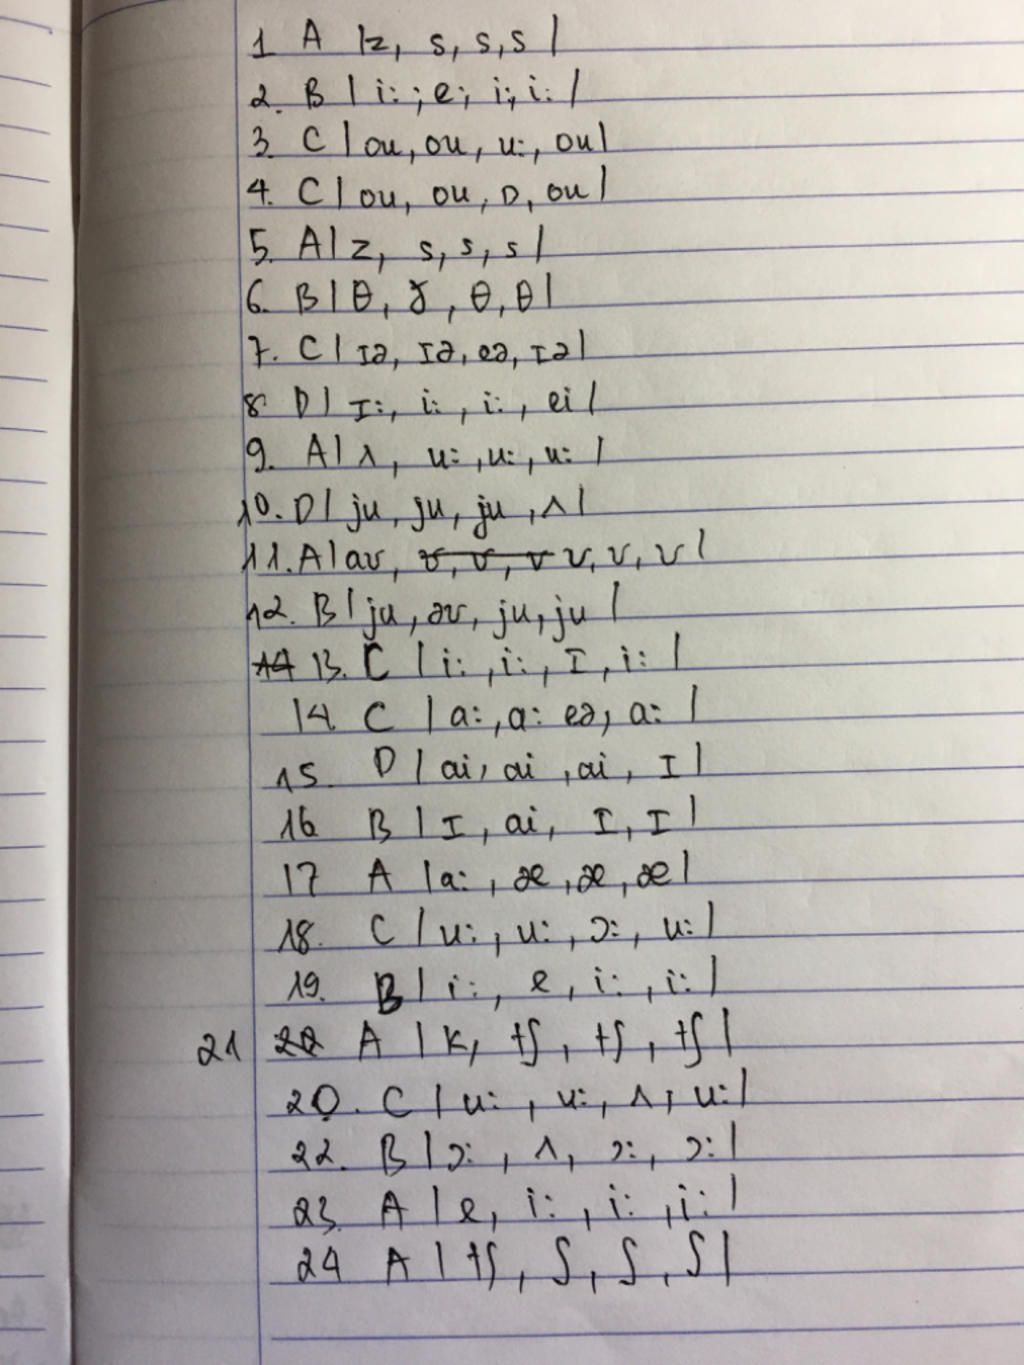 1 A |z, s, s, s|
2. B | i: ; e; i; i: /
3. C | ou, ou, u:, ou|
4. C | ou, ou, ɒ, ou|
5. A | z, s, s, s |
6. B | θ, ɣ, θ, θ |
7. C | ɪə, ɪə, eə, ɪə |
8 D | ɪ:, i:, i:, ei /
9. A | ʌ, u:, u:, u: /
10. D / ju, ju, ju, ʌ |
11. A | aʊ, ʊ, ʊ, ʊ ʊ, ʊ, ʊ |
12. B | ju, əʊ, ju, ju |
14 13. C | i:, i:, ɪ, i: |
14 C | a:, a: eə, a: |
15. D | ai, ai, ai, ɪ |
16 B | ɪ, ai, ɪ, ɪ |
17 A | a:, æ, æ, æ |
18. C / u:, u:, ɔ:, u: |
19. B | i:, e, i:, i: |
21 A | k, tʃ, tʃ, tʃ |
20. C | u:, u:, ʌ, u: |
22. B | ɔ:, ʌ, ɔ:, ɔ: |
23. A | e, i:, i:, i: |
24 A | tʃ, ʃ, ʃ, ʃ |